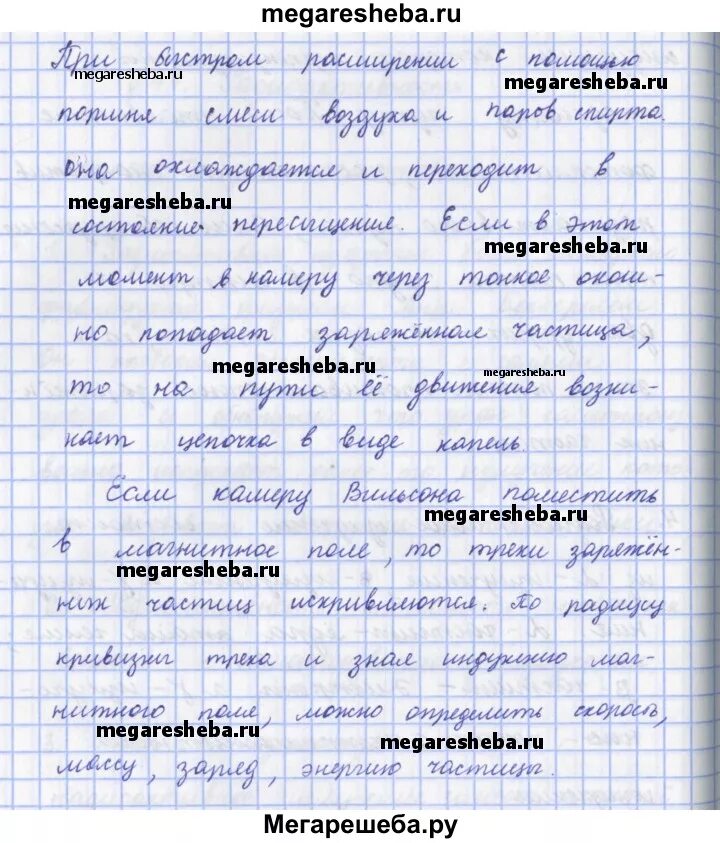 megaresheba.ru
При быстром расширении с помощью
megaresheba.ru
megaresheba.ru
поршня смеси воздуха и паров спирта.
она охлаждается и переходит в
megaresheba.ru
состояние пересыщение. Если в этот
megaresheba.ru
момент в камеру через тонкое окош-
но попадает заряжённая частица,
megaresheba.ru
megaresheba.ru
то на пути её движение возни-
кает цепочка в виде капель.
Если камеру Вильсона поместить
megaresheba.ru
в магнитное поле, то треки заряжён-
megaresheba.ru
них частиц искривляются. По радиусу
кривизны трека и зная индукцию маг-
нитного поле, можно определить скорость,
megaresheba.ru
массу, заряд, энергию частицы.
megaresheba.ru
Мегарешеба.ру